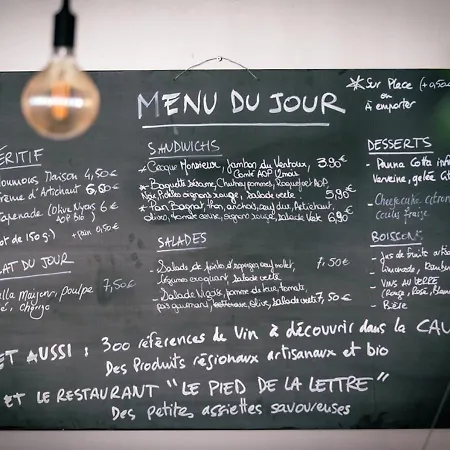 MENU DU JOUR
* Sur Place (+0,50€
ou
à emporter
ÉRITIF
Maison 4,50€
d'Artichaut 6,80€
Tapenade (Olive Nyons 6€
AOP Bio)
(Pot de 150g) + pain 0,50€
AT DU JOUR
Maison, poulpe 7,50€
SANDWICHS
* Croque Monsieur, Jambon du Ventoux, 3,90€
Comté AOP 12 mois
* Baguette Sésame, Chutney pommes, Roquefort AOP
Noix, Poires, oignons rouges, salade verte. 5,90€
* Pan Bagnat, thon, anchois, œuf dur, Artichaut,
olives, tomate cerise, oignons rouges, salade verte 6,90€
SALADES
- Salade de pointes d'asperges, œuf mollet, 7,50€
légumes croquants, salade verte
- Salade Niçoise, pomme de terre, tomate,
olive, salade verte 7,50€
DESSERTS
* Panna Cotta
Verveine, gelée
Cheesecake citron
Coulis fraise
BOISSON
- Jus de fruits artis
- Limonade,
- VINS AU VERRE
(Rouge, Rosé, Blanc
- Bière
ET AUSSI : 300 références de Vin à découvrir dans la CAV
Des Produits régionaux artisanaux et bio
ET LE RESTAURANT "LE PIED DE LA LETTRE"
Des petites assiettes savoureuses